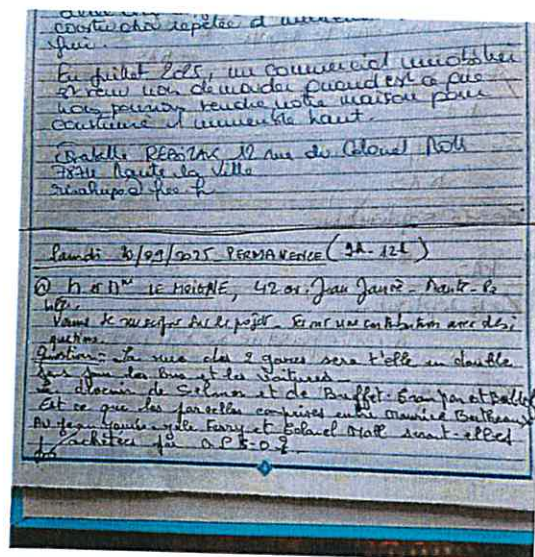 construction répétée et
fini.
En juillet 2025, un commercial immobilier
est venu nous demander quand est ce que
nous pouvons vendre notre maison pour
construire 1 immeuble haut.
Isabelle 12 rue du Colonel Moll
Mante la Ville
Samedi 20/09/2025 PERMANENCE (9h-12h)
M et Mme LE MOIGNE, 42 av. Jean Jaurès - Mante-la
Ville.
Venus se renseigner sur le projet - Feront une contribution avec des
questions.
Question = La rue des 2 gares sera t'elle en double
sens pour les bus et les voitures -
Le devenir de Selmer et de Buffet-Crampon et
Est ce que les parcelles comprises entre Maurice Berteaux
Av Jean Jaurès Jule Ferry et Colonel Moll seront-elles
achetées par